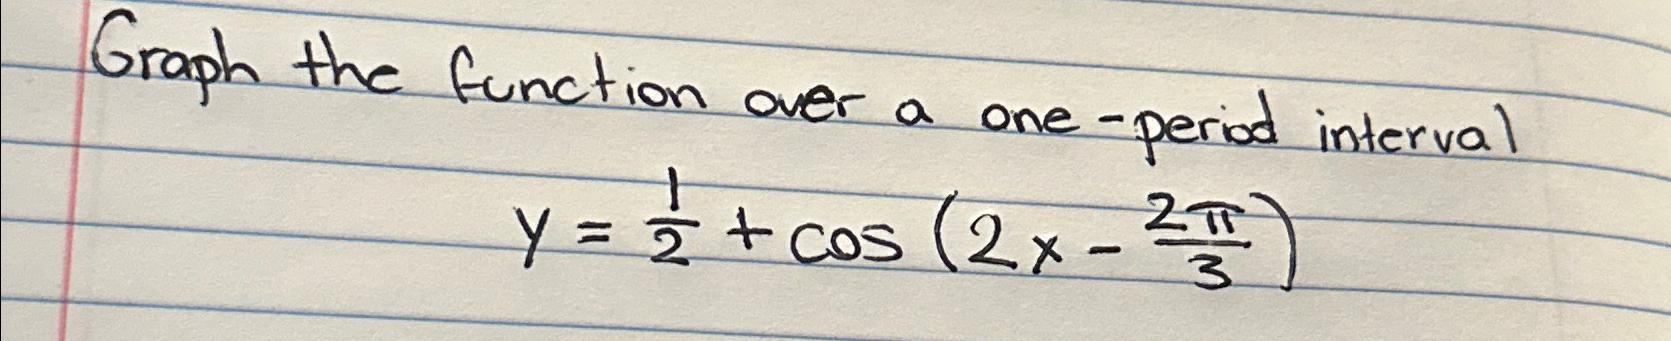 Graph the function over a one-period interval
y = 1/2 + cos (2x - 2π/3)